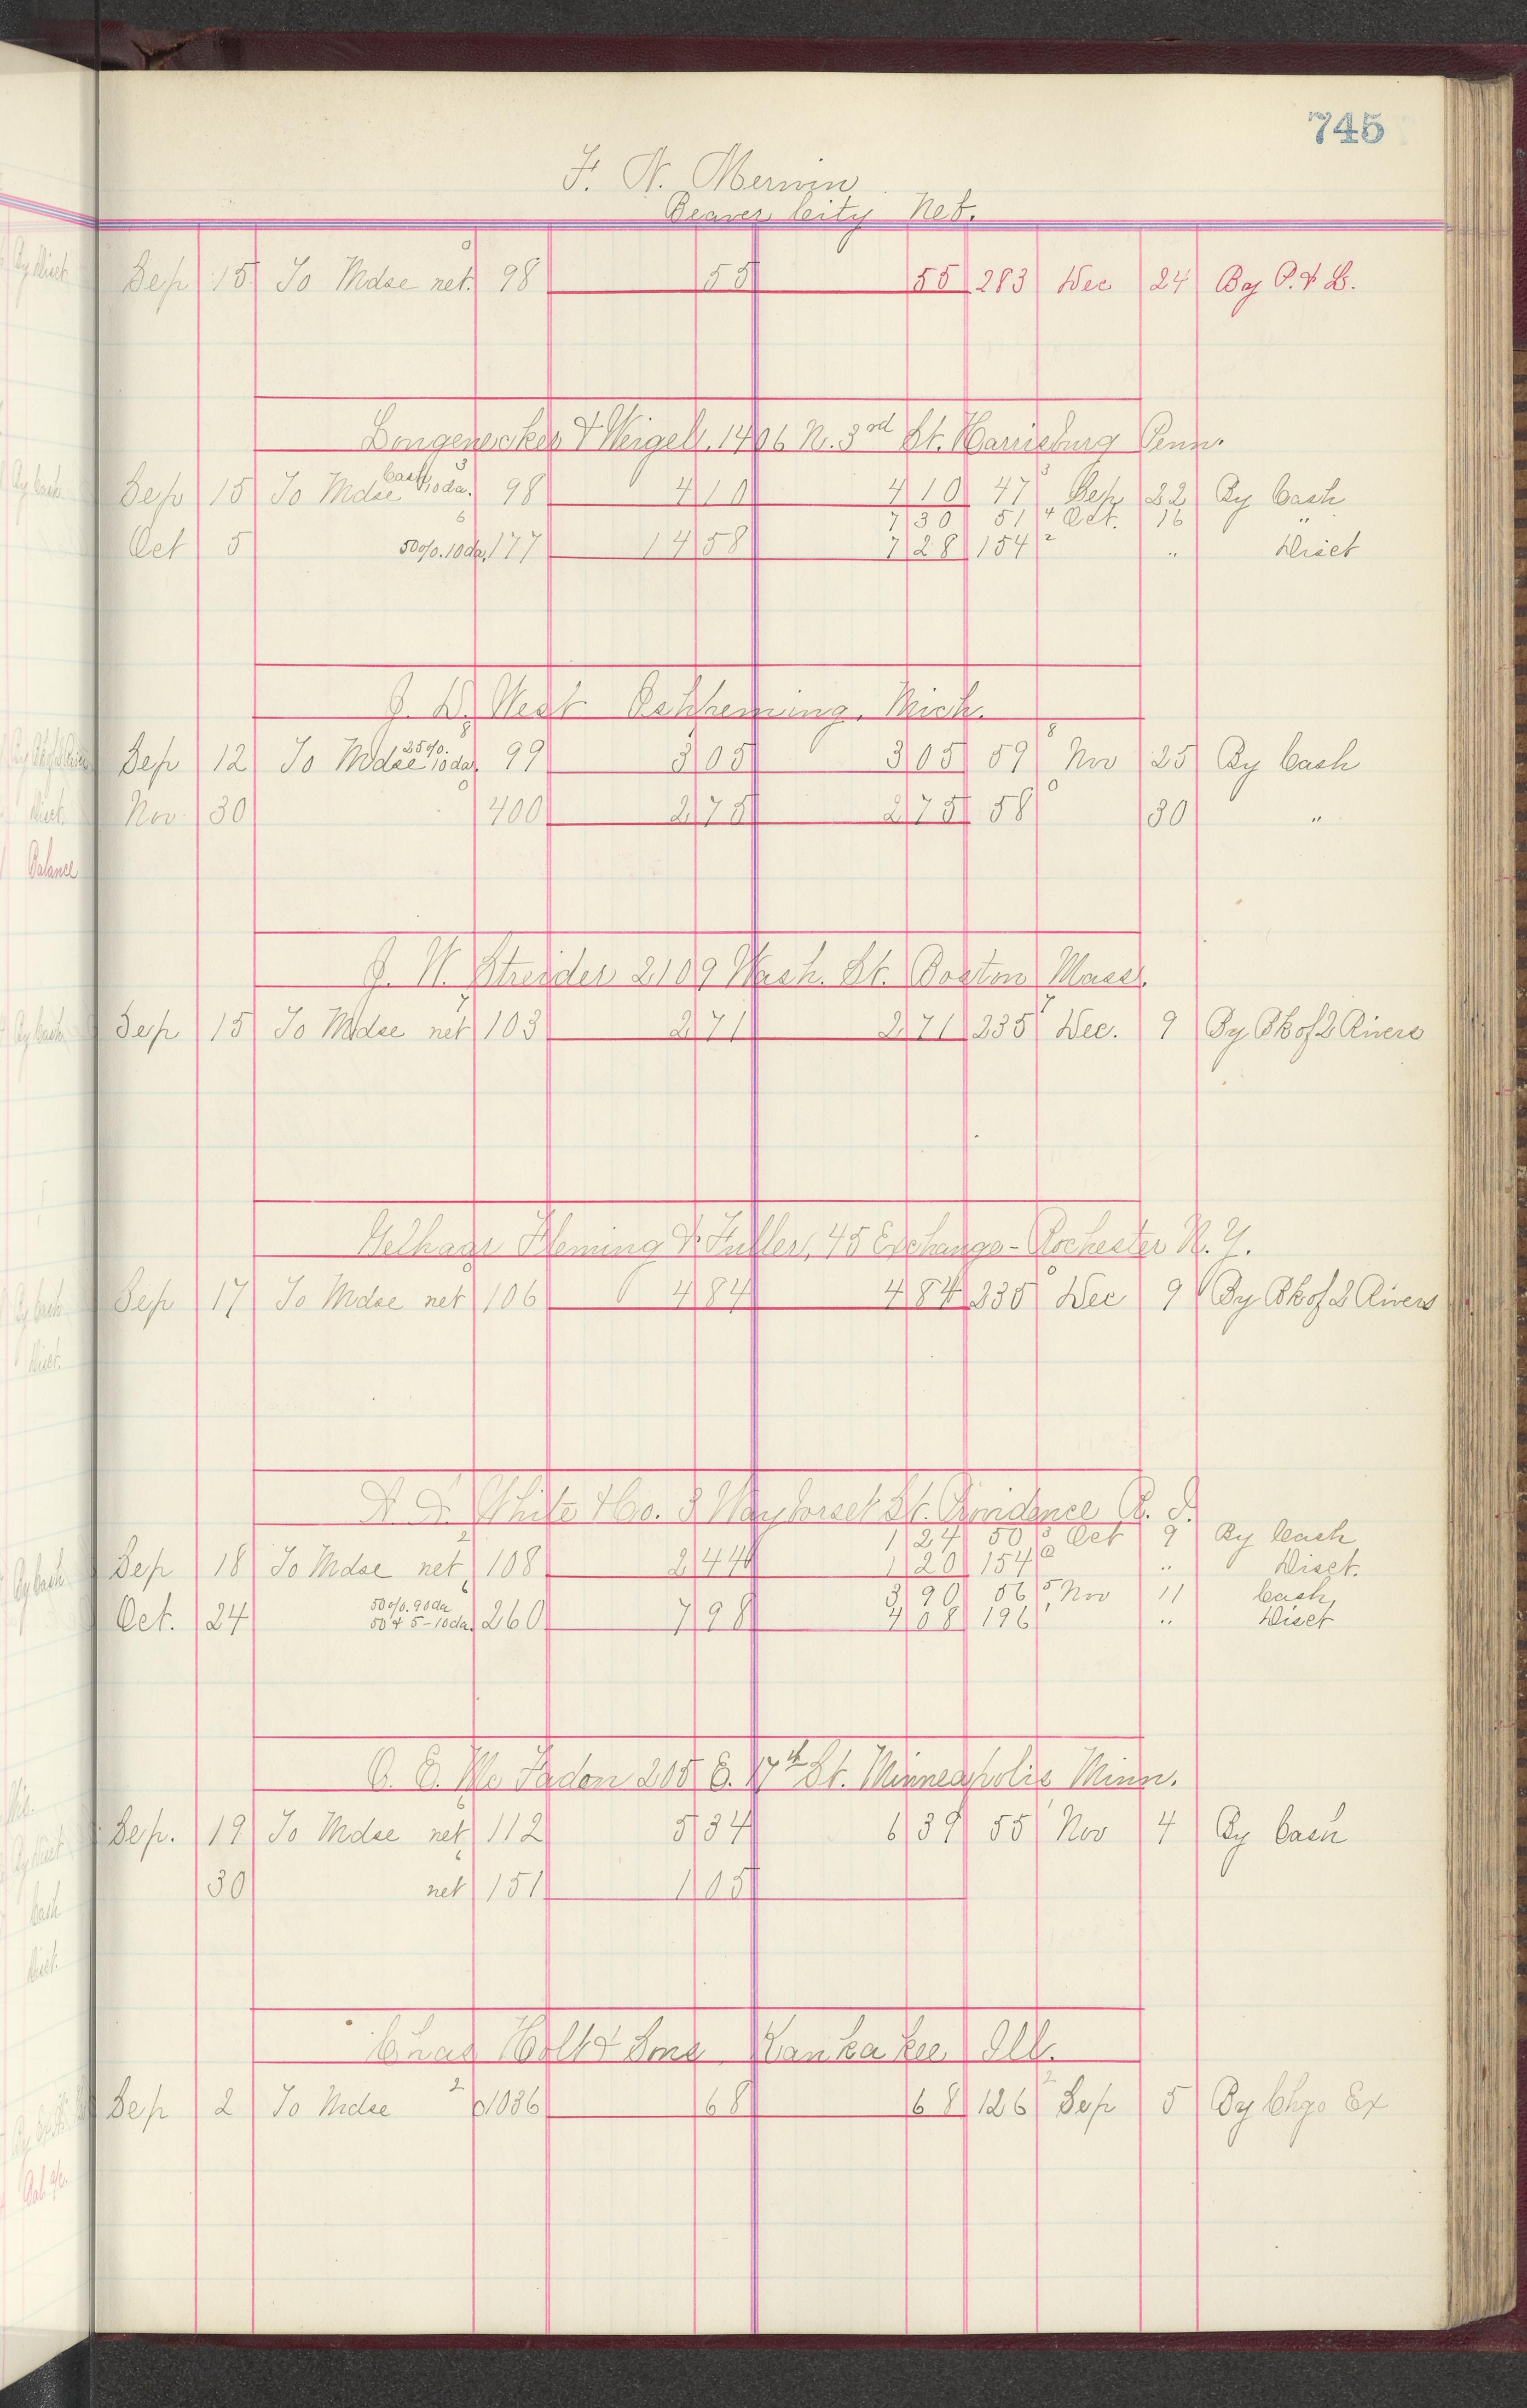 745
F. N. Merwin
Beaver City Neb.
Sep 15 To Mdse net. 98 55 55 283 Dec 24 By P. & L.
Longenecker & Weigel, 1406 N. 3rd St. Harrisburg Penn.
Sep 15 To Mdse Cash 10 da. 98 4 10 4 10 47 Sep 22 By Cash
7 30 51 Oct. 16 "
Oct 5 50%. 10 da, 177 14 58 7 28 154 " Disct
J. D. West Ishpeming, Mich.
Sep 12 To Mdse 25%. 10 da, 99 3 05 3 05 59 Nov 25 By Cash
Nov 30 400 2 75 2 75 58 30 "
J. W. Streider 2109 Wash. St. Boston Mass.
Sep 15 To Mdse net 103 2 71 2 71 235 Dec. 9 By Bk of 2 Rivers
Fleming & Fuller, 45 Exchange - Rochester N. Y.
Sep 17 To Mdse net 106 4 84 4 84 235 Dec 9 By Bk of 2 Rivers
White & Co. 3 St. Providence R. I.
1 24 50 Oct 9 By Cash
Sep 18 To Mdse net 108 2 44 1 20 154 " Disct.
3 90 56 Nov 11 Cash,
Oct. 24 50%. 90 da 50 & 5 - 10 da. 260 7 98 4 08 196 " Disct
O. E. Mc Faden 205 E. 17th St. Minneapolis Minn.
Sep. 19 To Mdse net 112 5 34 6 39 55 Nov 4 By Cash
30 net 151 1 05
Chas Holt & Sons Kankakee Ill.
Sep 2 To Mdse 1036 68 68 126 Sep 5 By Chgo Ex